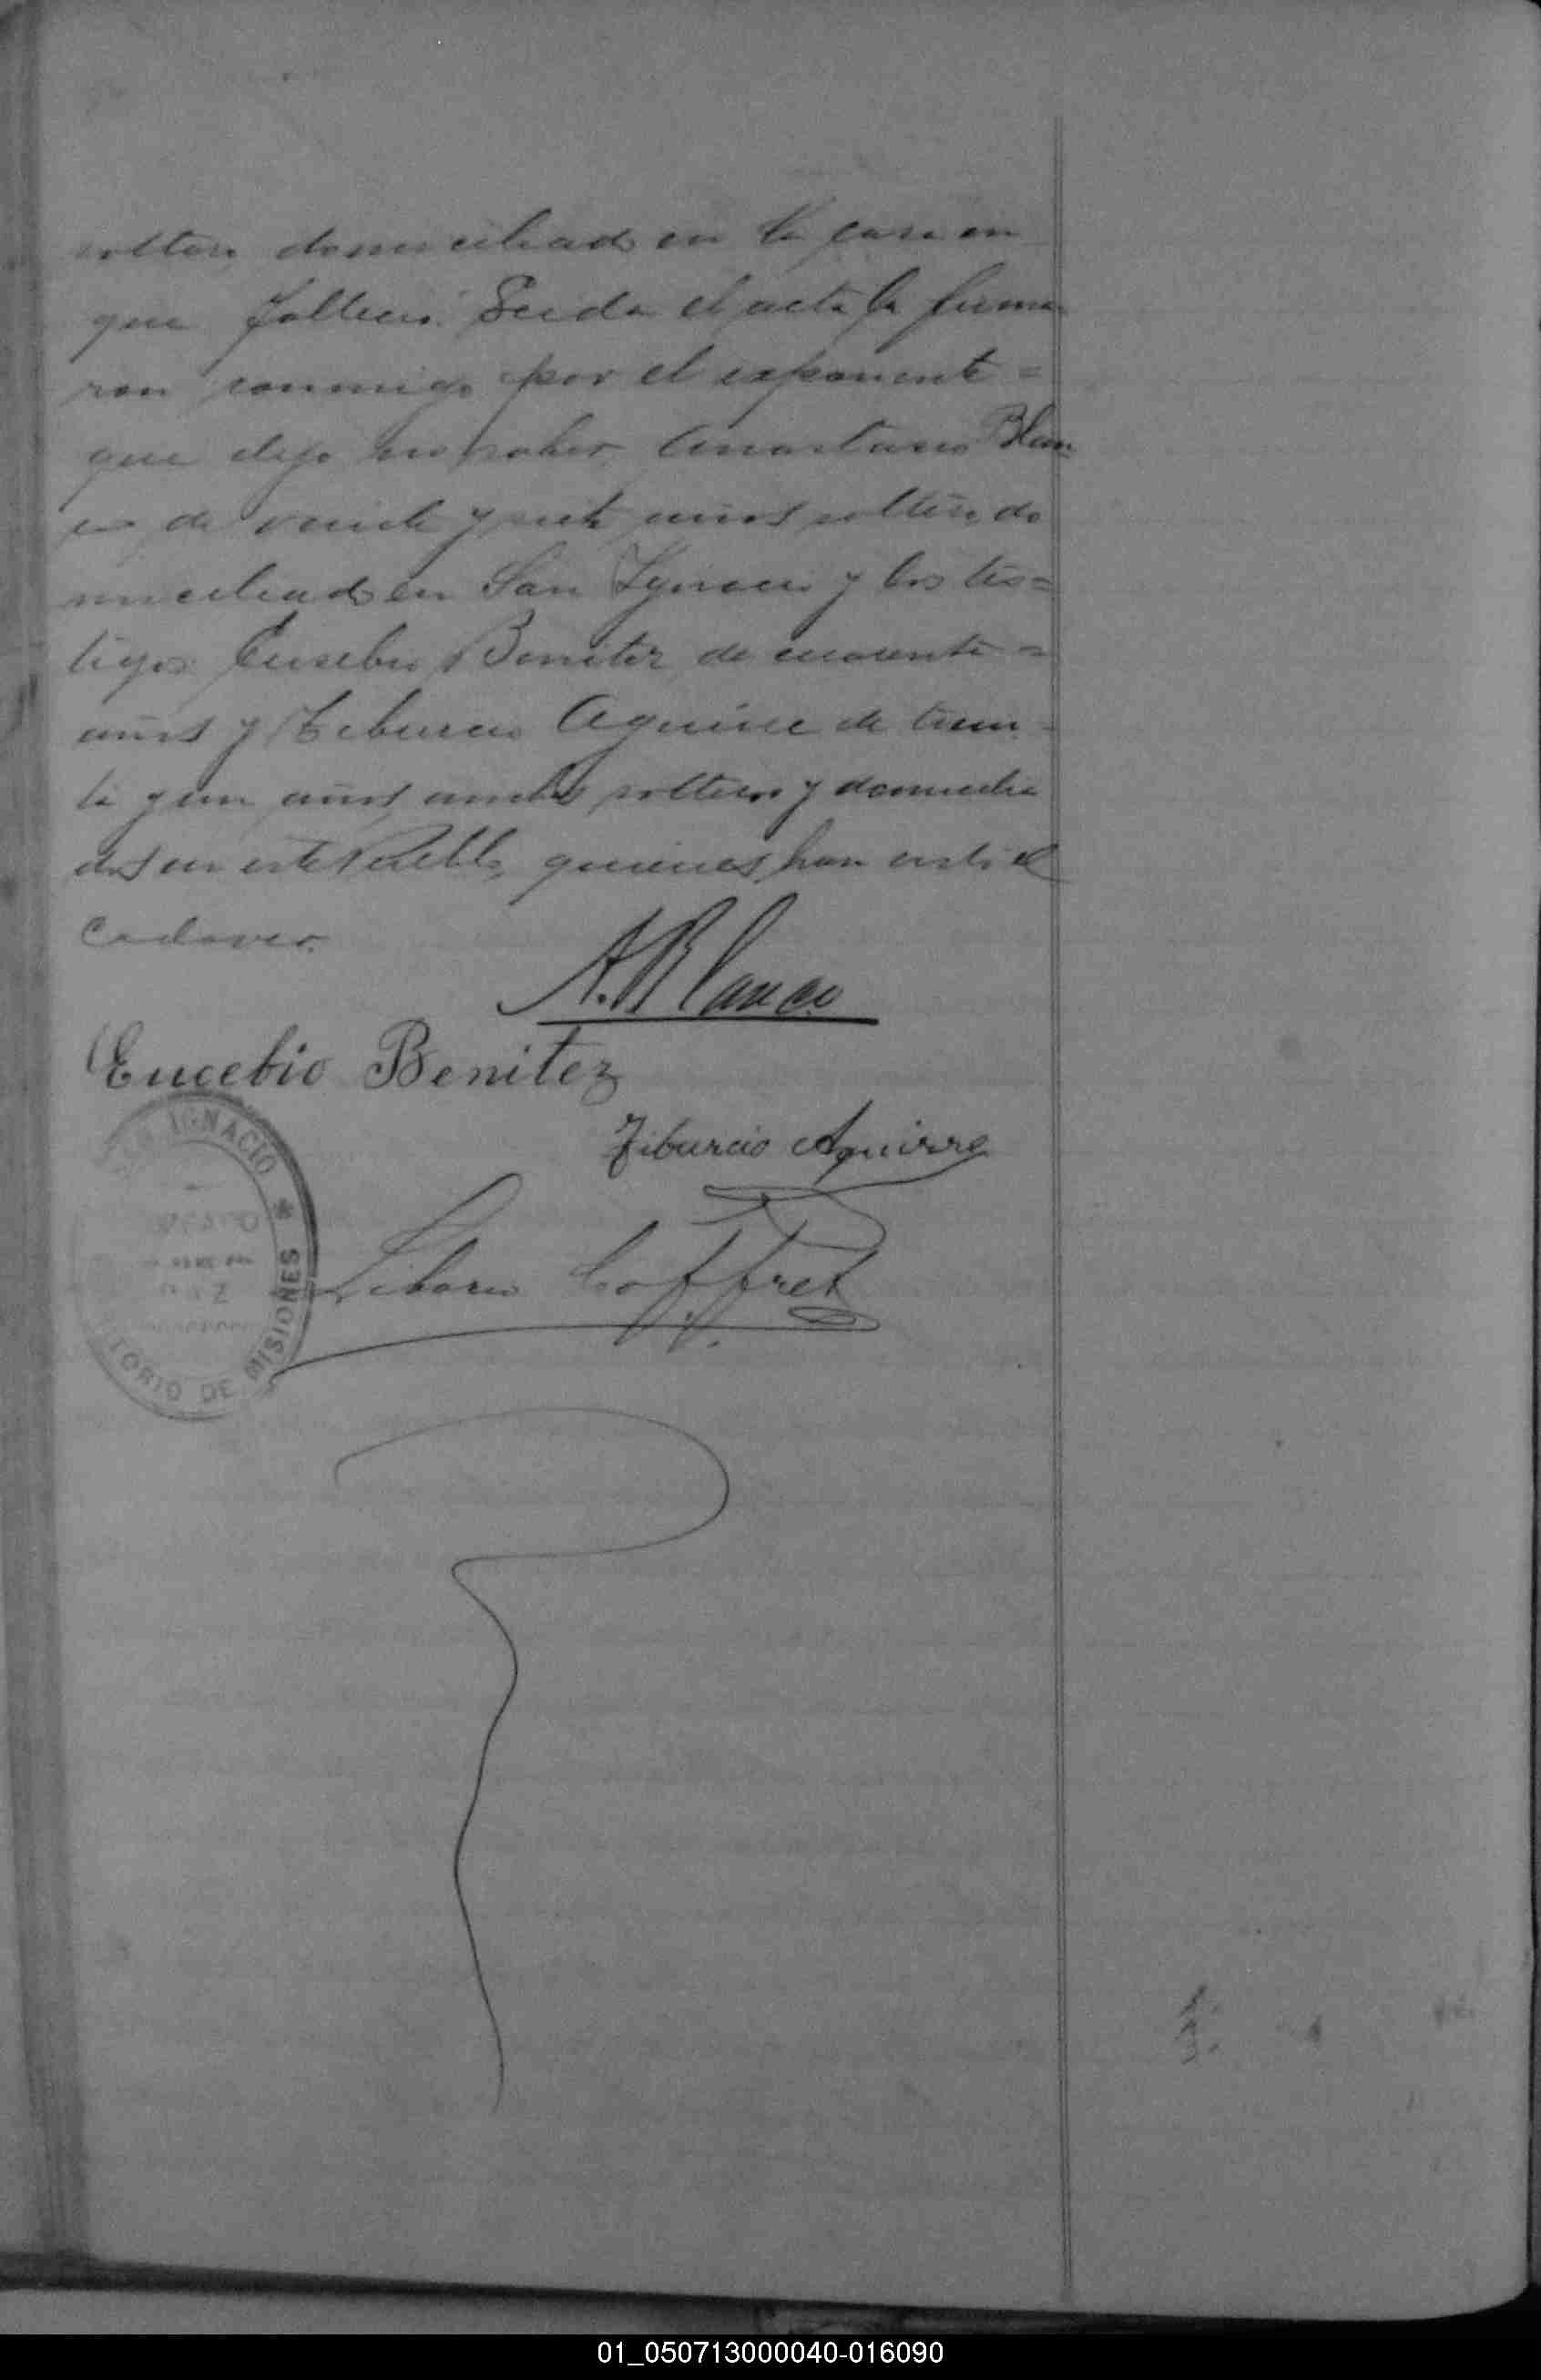 soltero, domiciliado en la casa en
que falleció. Leida el acta la firma
ron conmigo por el exponente =
que dijo no saber Anastacio Blan
co de veinte y siete años soltero, do
miciliado en San Ignacio y los tes=
tigos Eusebio Benitez de cuarenta =
años y Tiburcio Aguirre de trein
ta y un años, ambos solteros y domicilia
dos en este Pueblo, quienes han visto el
cadaver.
A. Blanco
Eucebio Benitez
Tiburcio Aguirre
Liborio Coffret
IGNACIO * MISIONES
TORIO DE
01_050713000040-016090